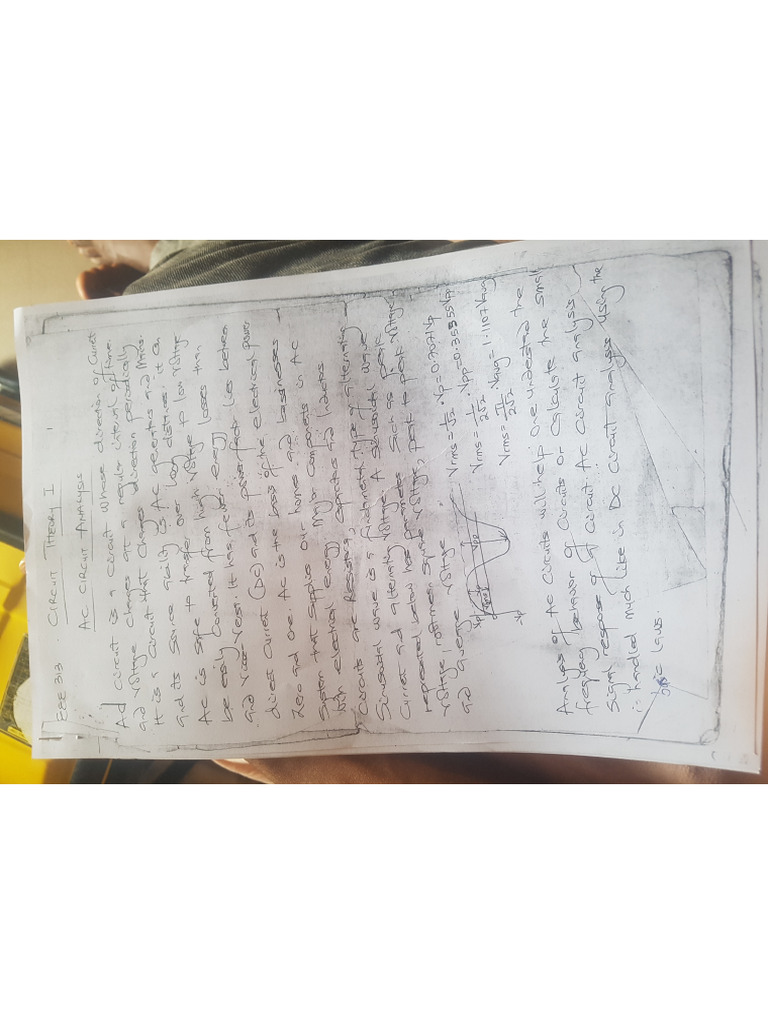 EEE 313 . CIRCUIT THEORY I
AC CIRCUIT ANALYSIS
Ad circuit is a circuit whose direction of current
and voltage changes at a regular interval of time.
It is a circuit that changes direction periodically
and its source mainly is AC generators and Mains.
AC is safe to transfer over long distances. it can
be easily converted from high voltage to low voltage
and vice-versa. It has fewer energy losses than
direct current (DC) and its power factor lies between
Zero and one. AC is the basis of the electrical power
System that supplies our homes and businesses
with electrical energy. Major components in AC
circuits are Resistors, capacitors and inductors
Sinusoidal wave is a fundamental type of alternating
Current and alternating voltage. A sinusoidal wave
represented below has parameters such as peak
voltage, rootmean square voltage, peak to peak voltage
and average voltage
Vrms = 1/√2 . Vp = 0.707Vp
Vrms = 1/2√2 . Vpp = 0.3535Vpp
Vrms = π/2√2 . Vavg = 1.1107 Vavg
Vp
Vrms
Vpp
-Vp
Analysis of AC Circuits will help one understand the
frequency behavior of circuits or calculate the small
Signal response of a circuit. AC Circuit analysis
is handled much like in DC Circuit analysis using the
same laws.